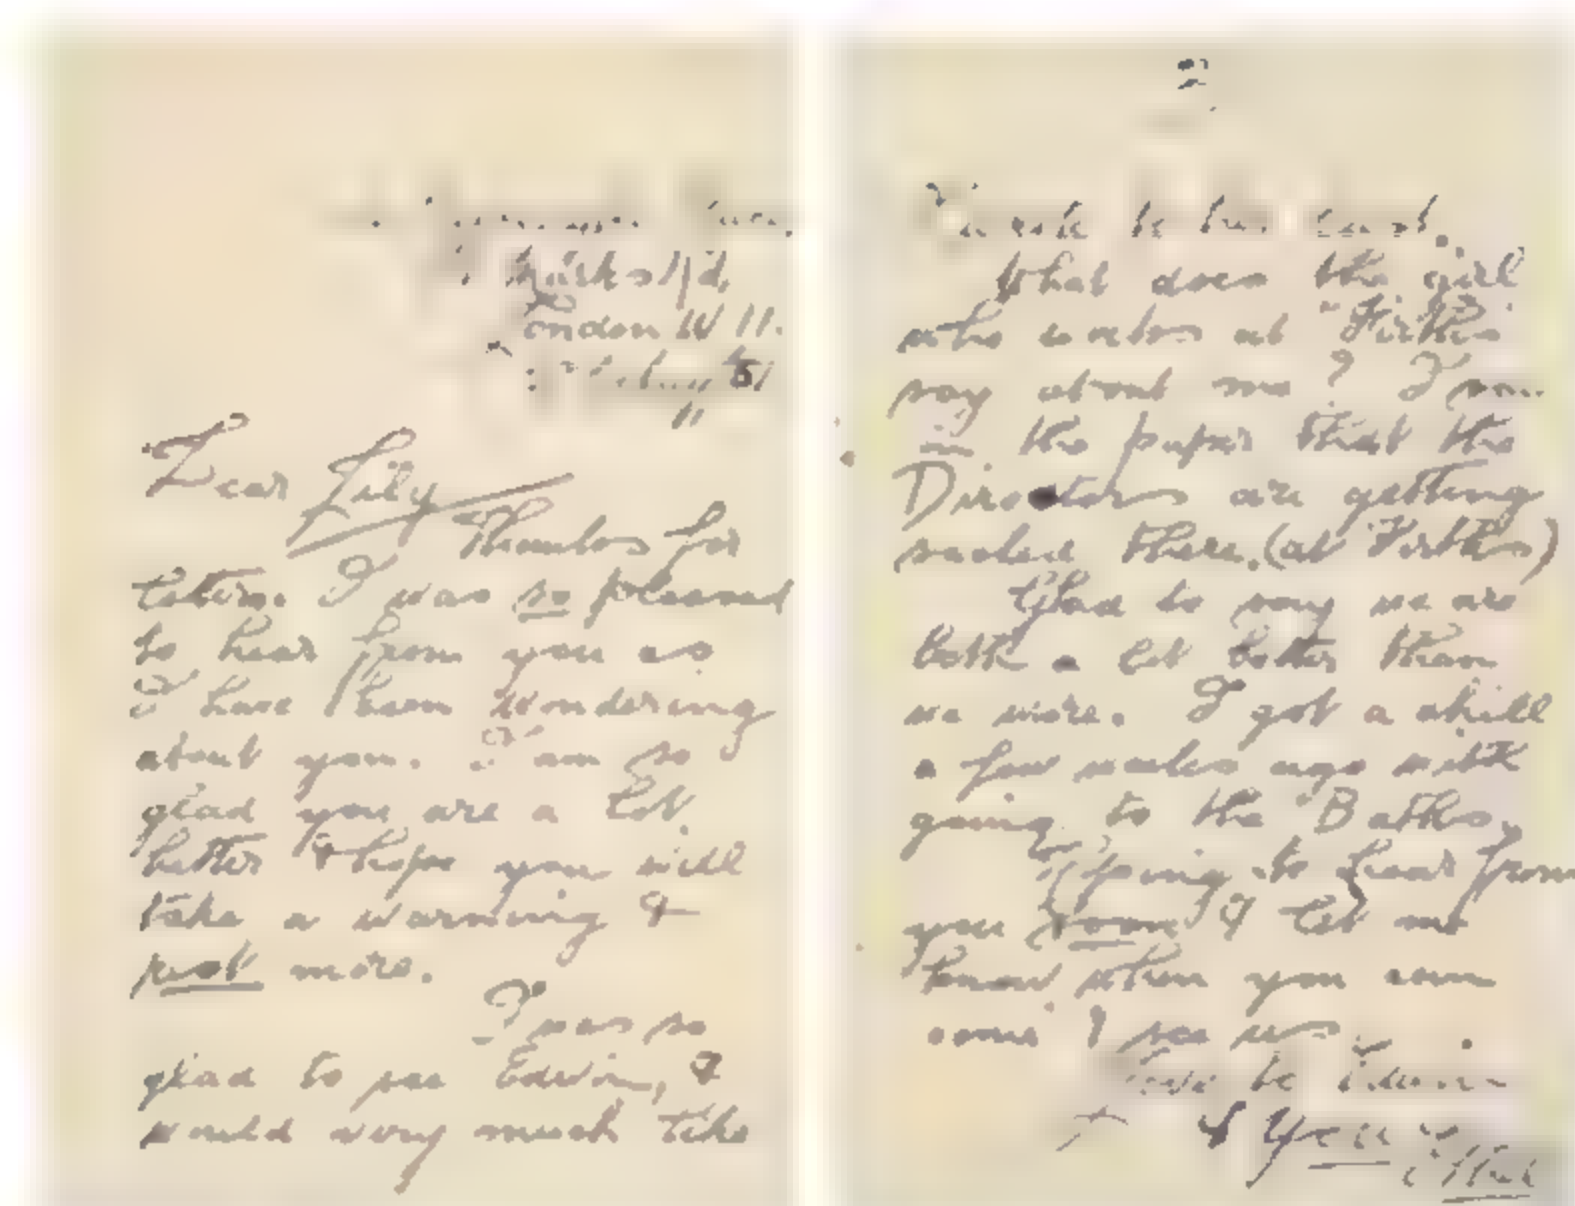 Marks Rd,
London W 11.
51
Dear Lily
Thanks for
letter. I was so pleased
to hear from you as
I have been wondering
about you. I am so
glad you are a lot
better & hope you will
take a warning &
rest more.
I was so
glad to see Edwin, &
would very much like
2
to
What does the girl
who works at "Firths"
say about me? I saw
in the paper that the
Directors are getting
sacked there. (at Firths)
Glad to say we are
both a lot better than
we were. I got a chill
a few weeks ago with
going to the Baths.
Hoping to hear from
you soon & let me
know when you can
come & see us.
Love to Edwin
& You